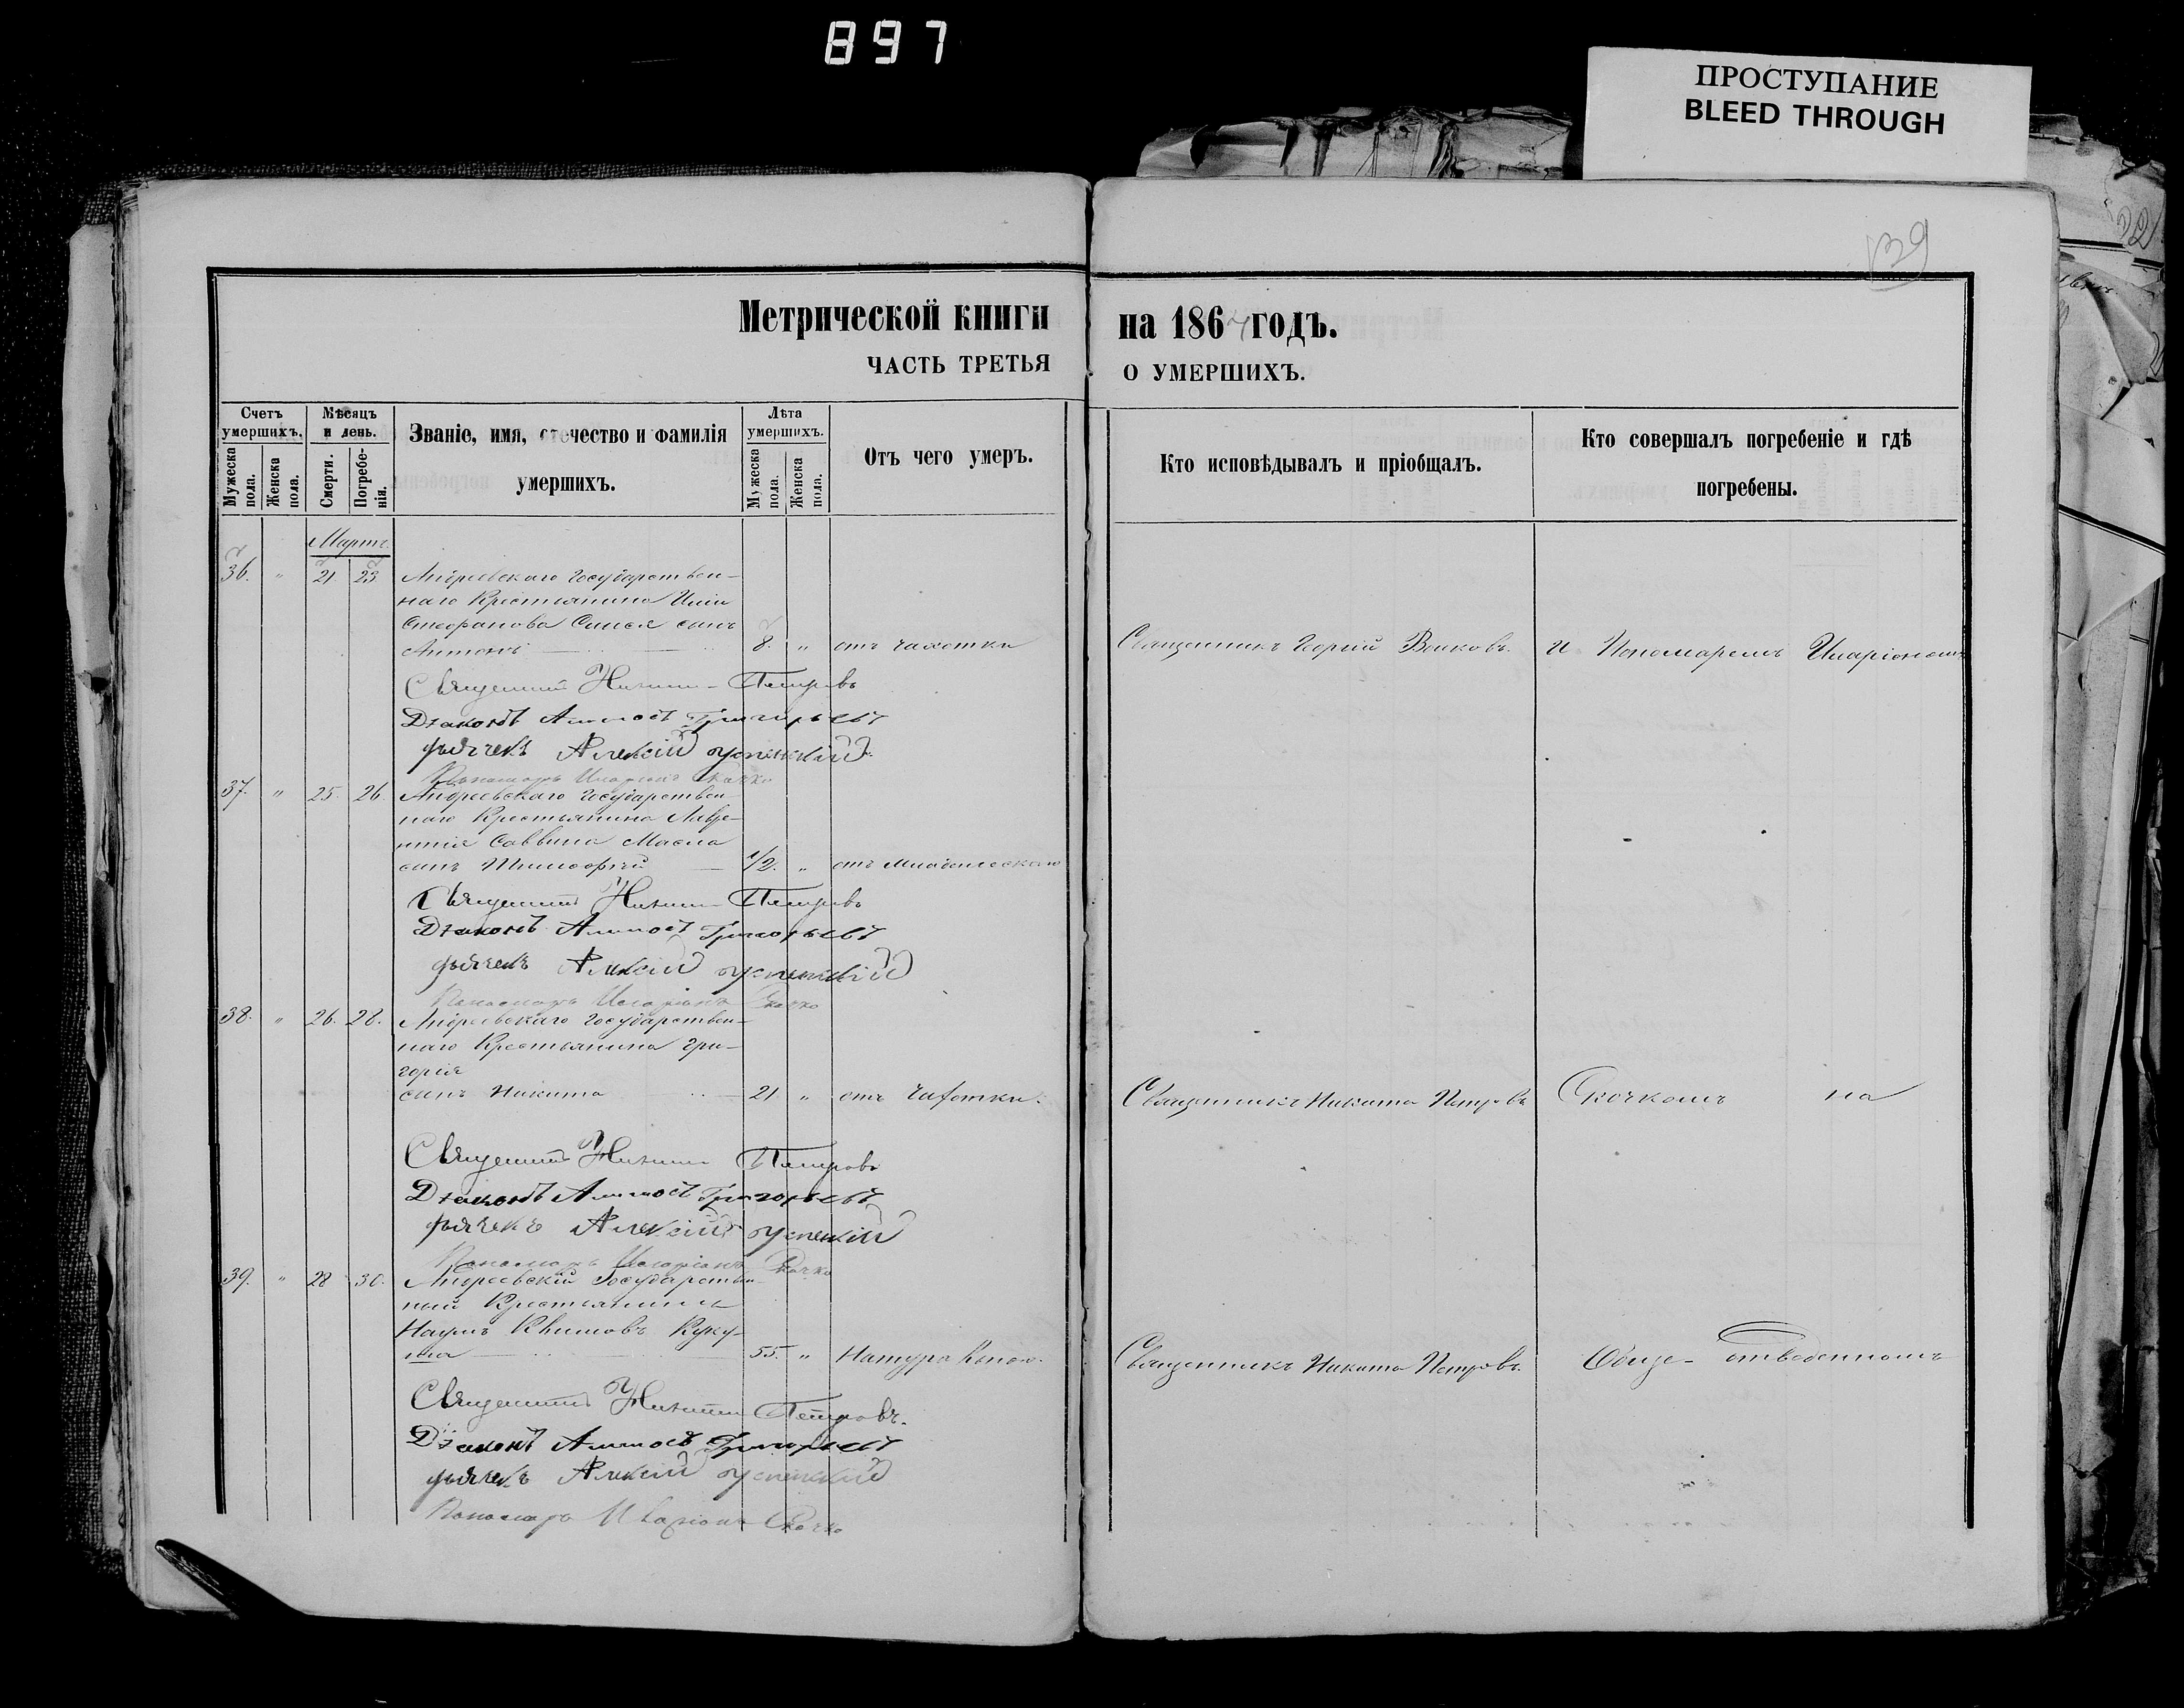 897
ПРОСТУПАНИЕ
BLEED THROUGH
139
Метрической книги на 1864 годъ.
ЧАСТЬ ТРЕТЬЯ О УМЕРШИХЪ.
Счетъ умершихъ.
Мужеска пола.
Женска пола.
Мѣсяцъ и день.
Смерти.
Погребенія.
Званіе, имя, отечество и фамилія умершихъ.
Лѣта умершихъ.
Мужеска пола.
Женска пола.
Отъ чего умеръ.
Кто исповѣдывалъ и пріобщалъ.
Кто совершалъ погребеніе и гдѣ погребены.
Мартъ
36. " 21 23 Андреевскаго Государствен-
наго Крестьянина
Стефанова сынъ
Антонъ 8. " отъ чахотки Священникъ Георгій Волковъ. и Пономаремъ Иларіономъ
Священникъ Никита Петровъ
Діаконъ Григорьевъ
дьячекъ Алексій Успенскій
Пономарь Иларіонъ Скочко
37. " 25. 26. Андреевскаго Государствен-
наго Крестьянина Лавре-
нтія Саввина Масла
сынъ 1/2. " отъ младенческаго
Священникъ Никита Петровъ
Діаконъ Григорьевъ
дьячекъ Алексій Успенскій
Пономарь Иларіонъ Скочко
38. " 26. 28. Андреевскаго Государствен-
наго Крестьянина Гри-
горія
сынъ Никита 21 " отъ чахотки. Священникъ Никита Петровъ Скочкомъ на
Священникъ Никита Петровъ
Діаконъ Григорьевъ
дьячекъ Алексій Успенскій
Пономарь Иларіонъ Скочко
39. " 28 30. Андреевскій Государствен-
ный Крестьянинъ
Наумъ Куку-
ша 55. " Натурально. Священникъ Никита Петровъ. Обще- отведенномъ
Священникъ Никита Петровъ.
Діаконъ Григорьевъ
дьячекъ Алексій Успенскій
Пономарь Иларіонъ Скочко